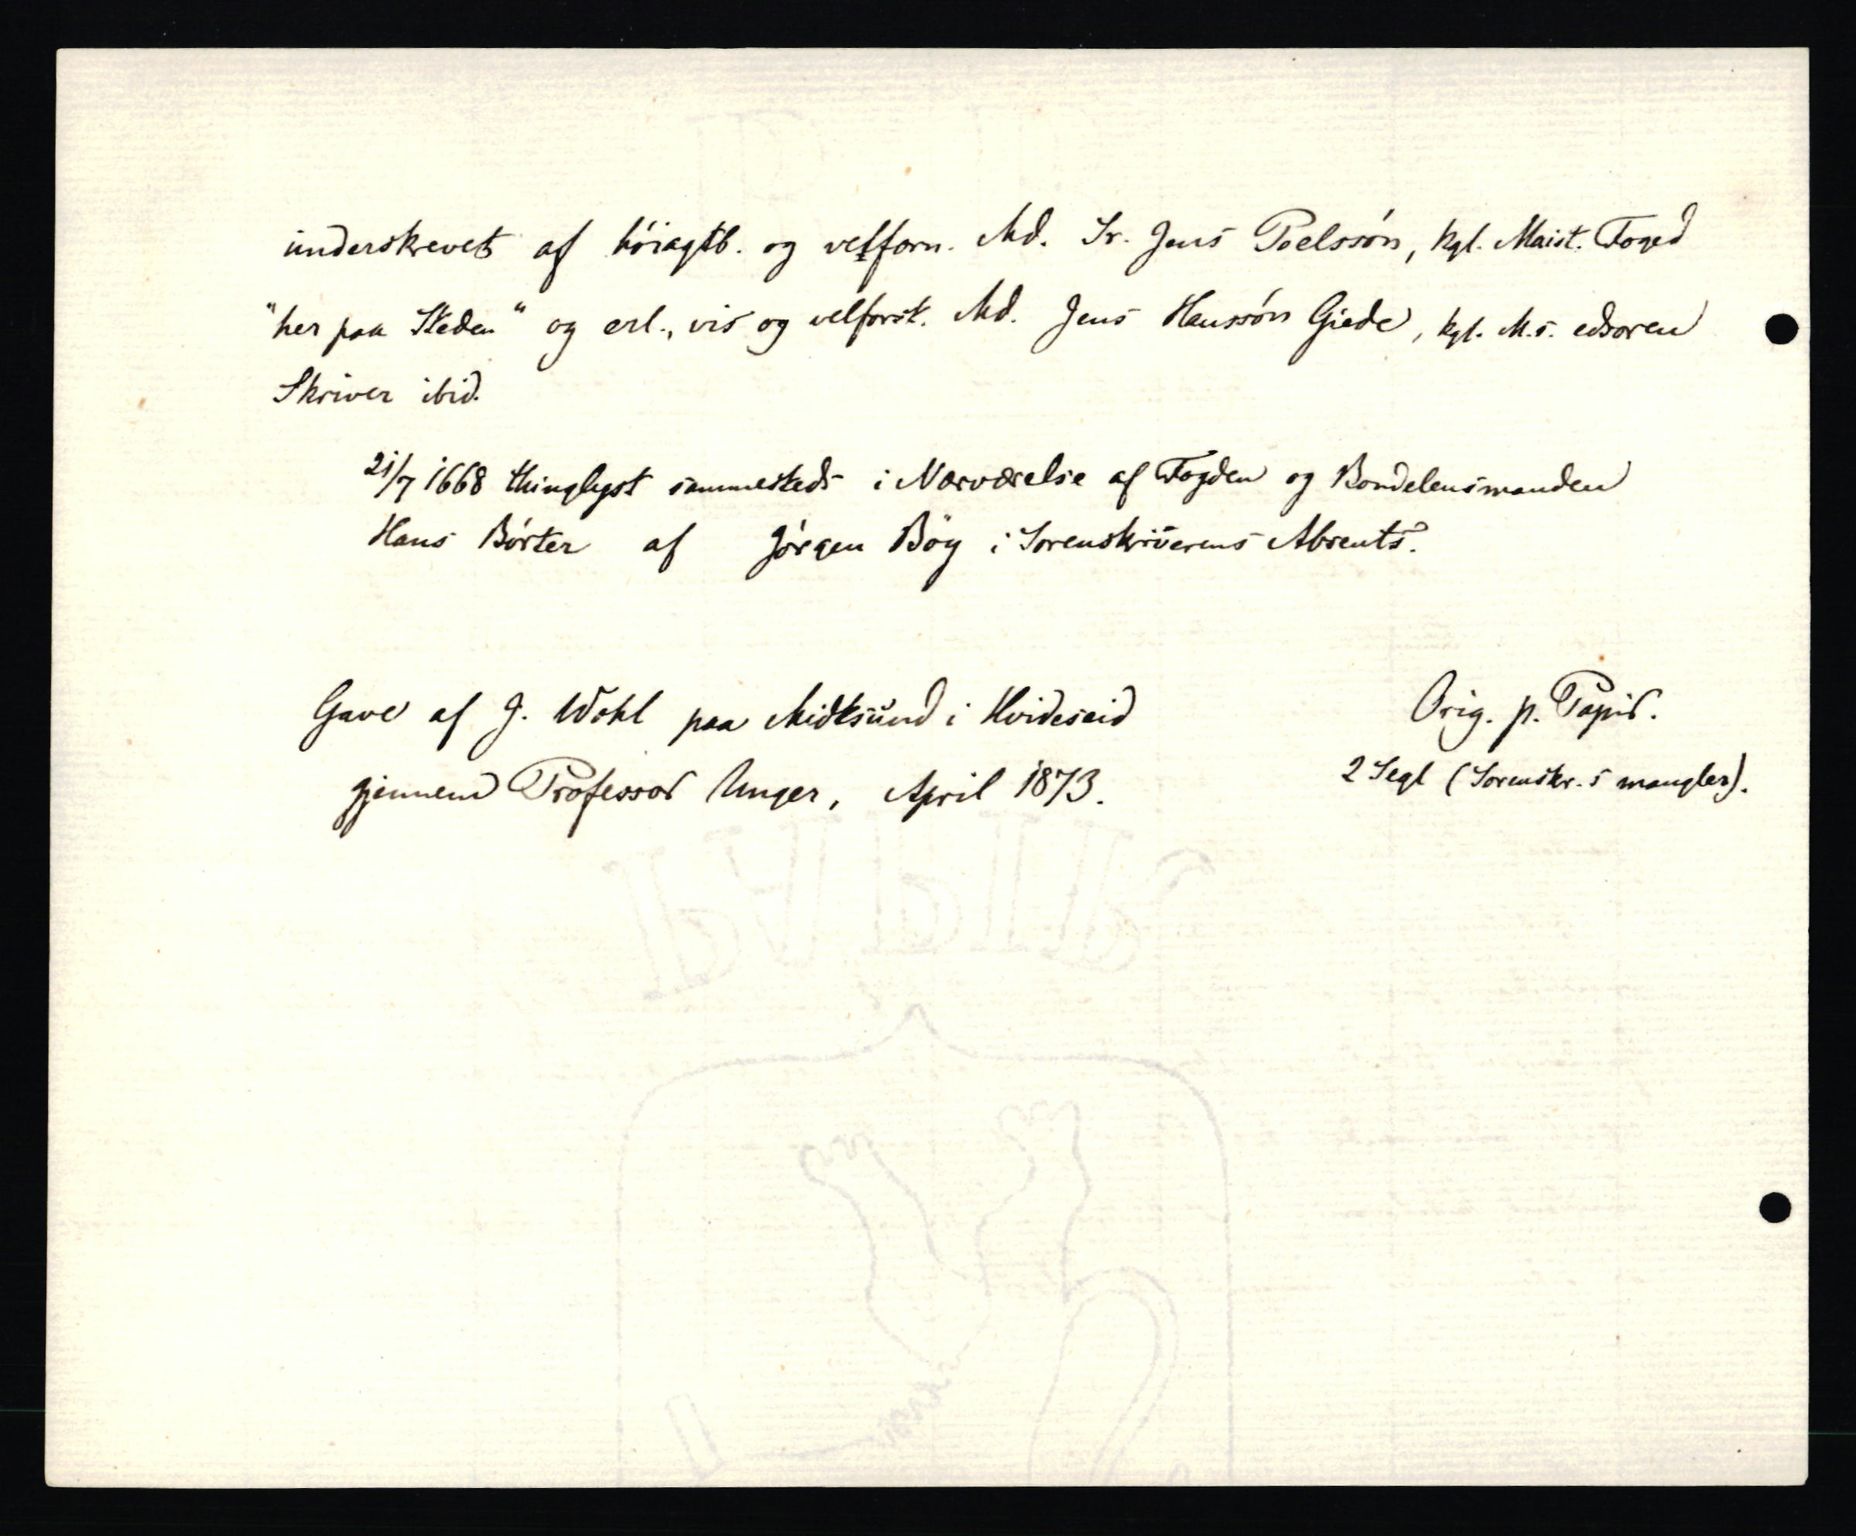 underskrevet af höiagtb. og velforn. Md. Sr. Jens Poelssön, kgl. Maist. Foged
"her paa Steden" og erl., vis og velforst. Md. Jens Hanssön Giede, kgl. M.s. edsoren
Skriver ibid.
21/7 1668 thinglyst sammesteds i Nærværelse af Fogden og Bondelensmanden
Hans Börter af Jörgen Böy i Sorenskriverens Absents.
Gave af J. Wohl paa Midtsund i Hvideseid
gjennem Professor Unger, April 1873.
Orig. p. Papir.
2 Segl (Sorenskr.s mangler).